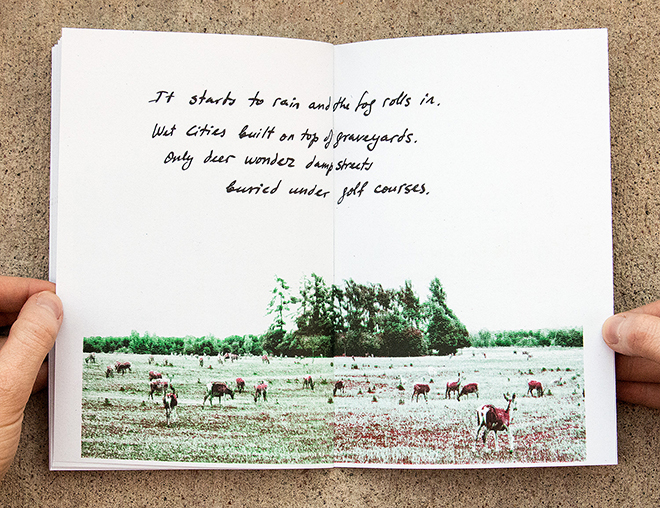 It starts to rain and the fog rolls in.
Wet Cities built on top of graveyards.
Only deer wonder damp streets
buried under golf courses.